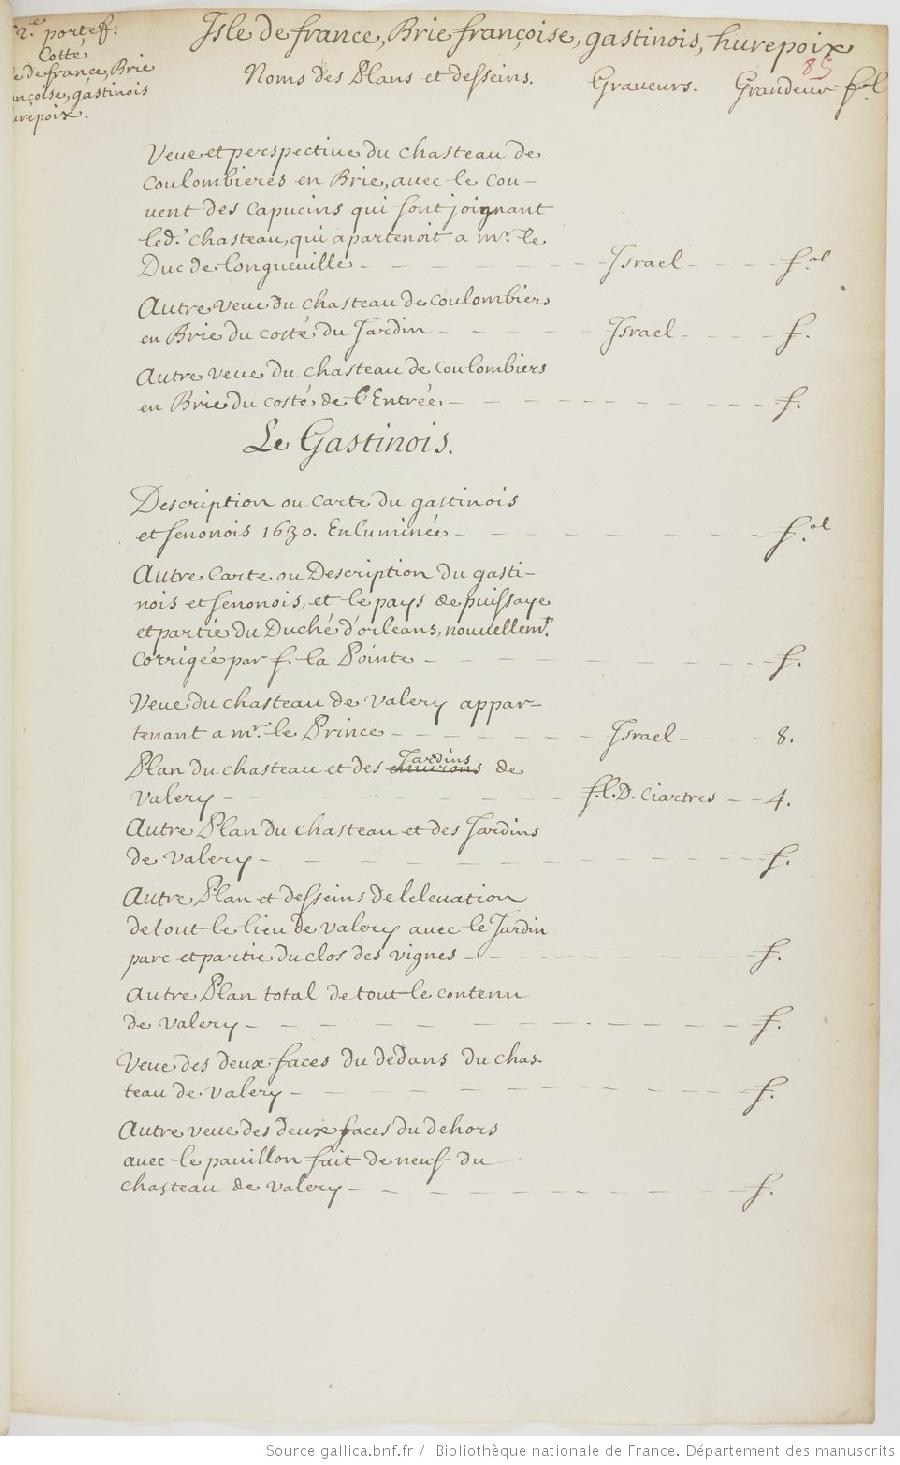 2.e portef.
Cotté
e de france, Brie
ançoise, gastinois
urepoix.
Isle de france, Brie françoise, gastinois, hurepoix
85
Noms des Plans et desseins. Graveurs. Grandeur fol
Veue et perspective du chasteau de
Coulombieres en Brie, avec le cou-
vent des Capucins qui sont joignant
led.t chasteau, qui apartenoit a mr. le
Duc de longueville - - - Israel - - - f.ol
Autre veue du chasteau de coulombiers
en Brie du costé du Jardin - - - Israel - - - f.
Autre veue du chasteau de coulombiers
en Brie du costé de l'Entrée - - - f.
Le Gastinois.
Description ou carte du gastinois
et senonois 1630. Enluminée - - - f.ol
Autre Carte ou Description du gasti-
nois et senonois, et le pays de puissaye
et partie du Duché d'orleans, nouvellemt.
corrigée par f. la Pointe - - - f.
Veue du chasteau de valery appar-
tenant a mr. le Prince - - - Israel - - - 8.
Jardins
Plan du chasteau et des environs de
valery - - - f.l.D. Ciartres - - 4.
Autre Plan du chasteau et des Jardins
de valery - - - f.
Autre Plan et desseins de lelevation
de tout le lieu de valery avec le Jardin
parc et partie du clos des vignes - - - f.
Autre Plan total de tout le contenu
de valery - - - f.
Veue des deux faces du dedans du chas-
teau de valery - - - f.
Autre veue des deux faces du dehors
avec le pavillon fait de neuf du
chasteau de valery - - - f.
Source gallica.bnf.fr / Bibliothèque nationale de France. Département des manuscrits